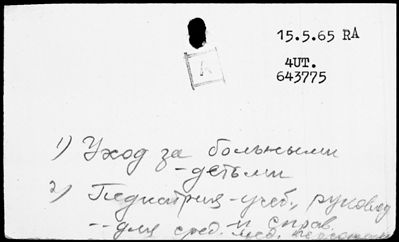 15.5.65 RA
4UT.
643775
1) Уход за больными
-детьми
2) Педиатрия - учеб, руковод
и справ.
-- для сред. мед. персонала